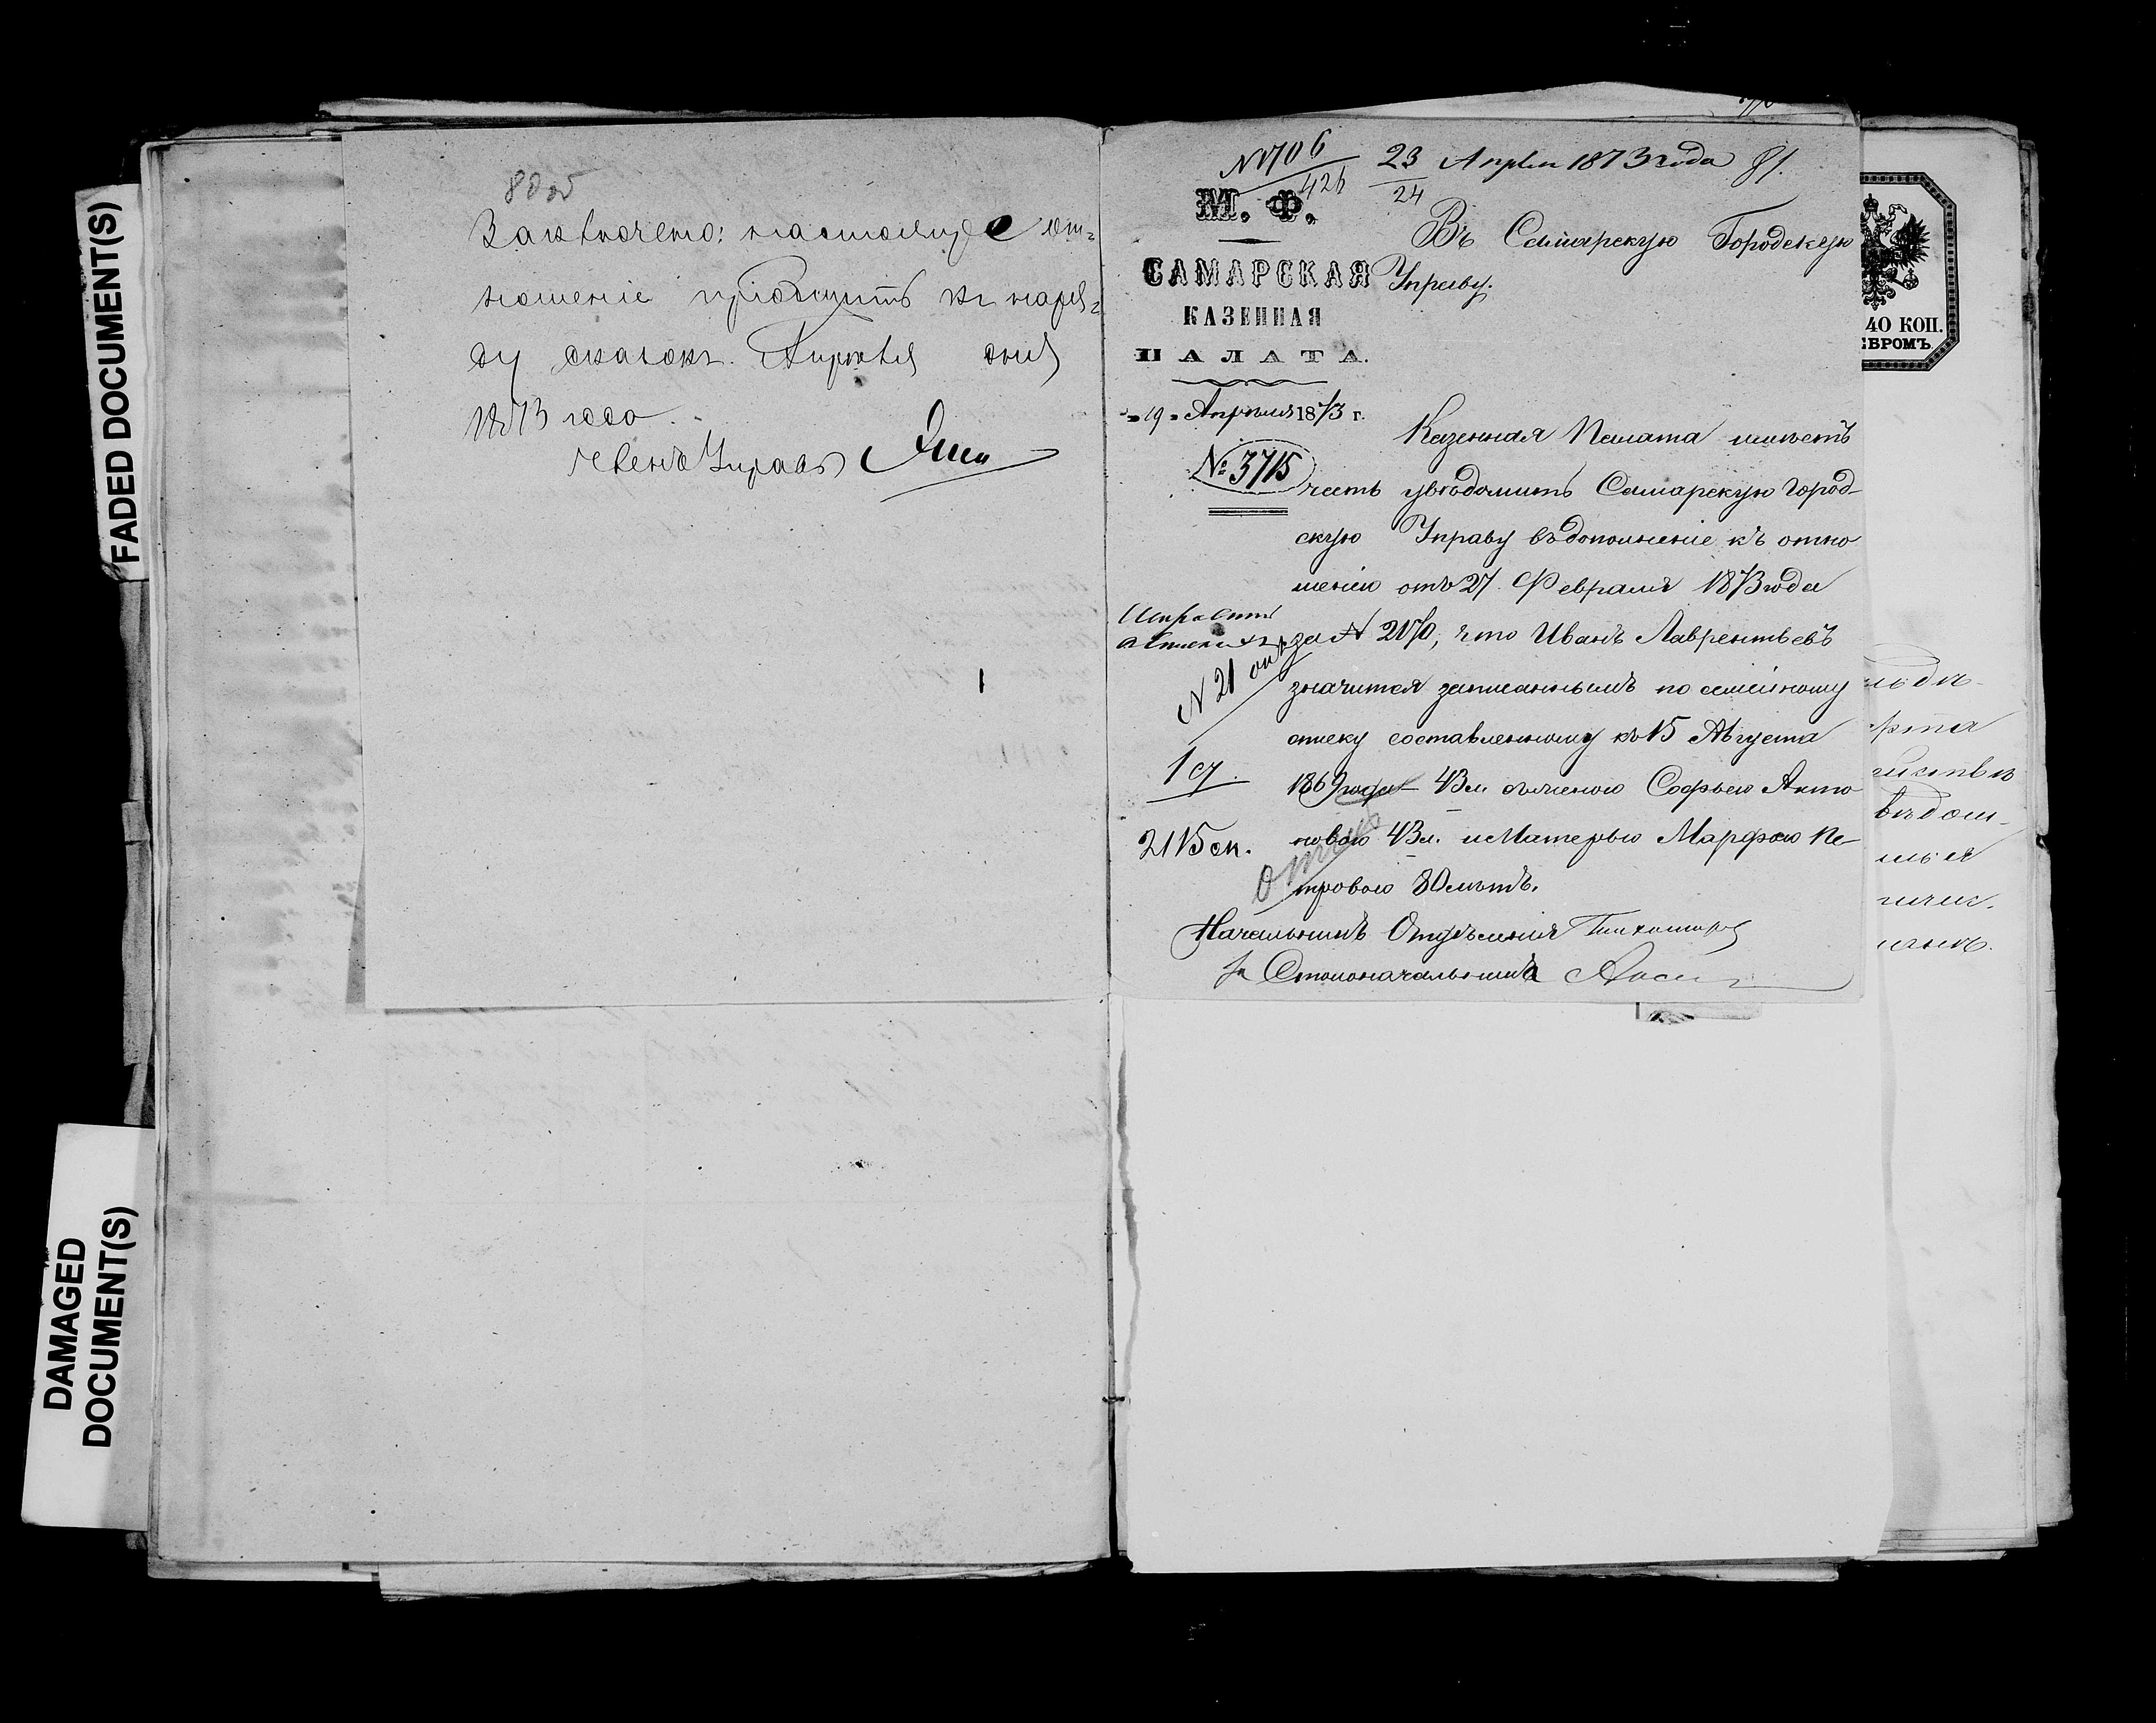 FADED DOCUMENT(S)
DAMAGED
DOCUMENT(S)
80 об
Заключено: настоящее от-
ношение приобщить къ наря-
ду сказокъ. Апрѣля дня
1873 года.
Членъ Управы
№ 1706
426
23 Апрѣля 1873 года 81.
24
М. Ф.
САМАРСКАЯ
КАЗЕННАЯ
ПАЛАТА.
„19„ Апрѣля 1873 г.
№ 3715
Въ Самарскую Городскую
Управу.
Казенная Палата имѣетъ
честь увѣдомить Самарскую Город-
скую Управу въ дополненіе къ отно
шенію отъ 27. Февраля 1873 года
за № 2170, что Иванъ Лаврентьевъ
значится записаннымъ по семейному
списку составленному къ 15 Августа
1869 года 43 л. съ женою Софьею Анто
новою 43 л. и Матерью Марфою Пе-
тровою 80 лѣтъ.
№ 21
1 су.
2115 ск.
Начальникъ Отдѣленія Тихомиров
За Столоначальника
40 КОП.
ЕБРОМЪ.